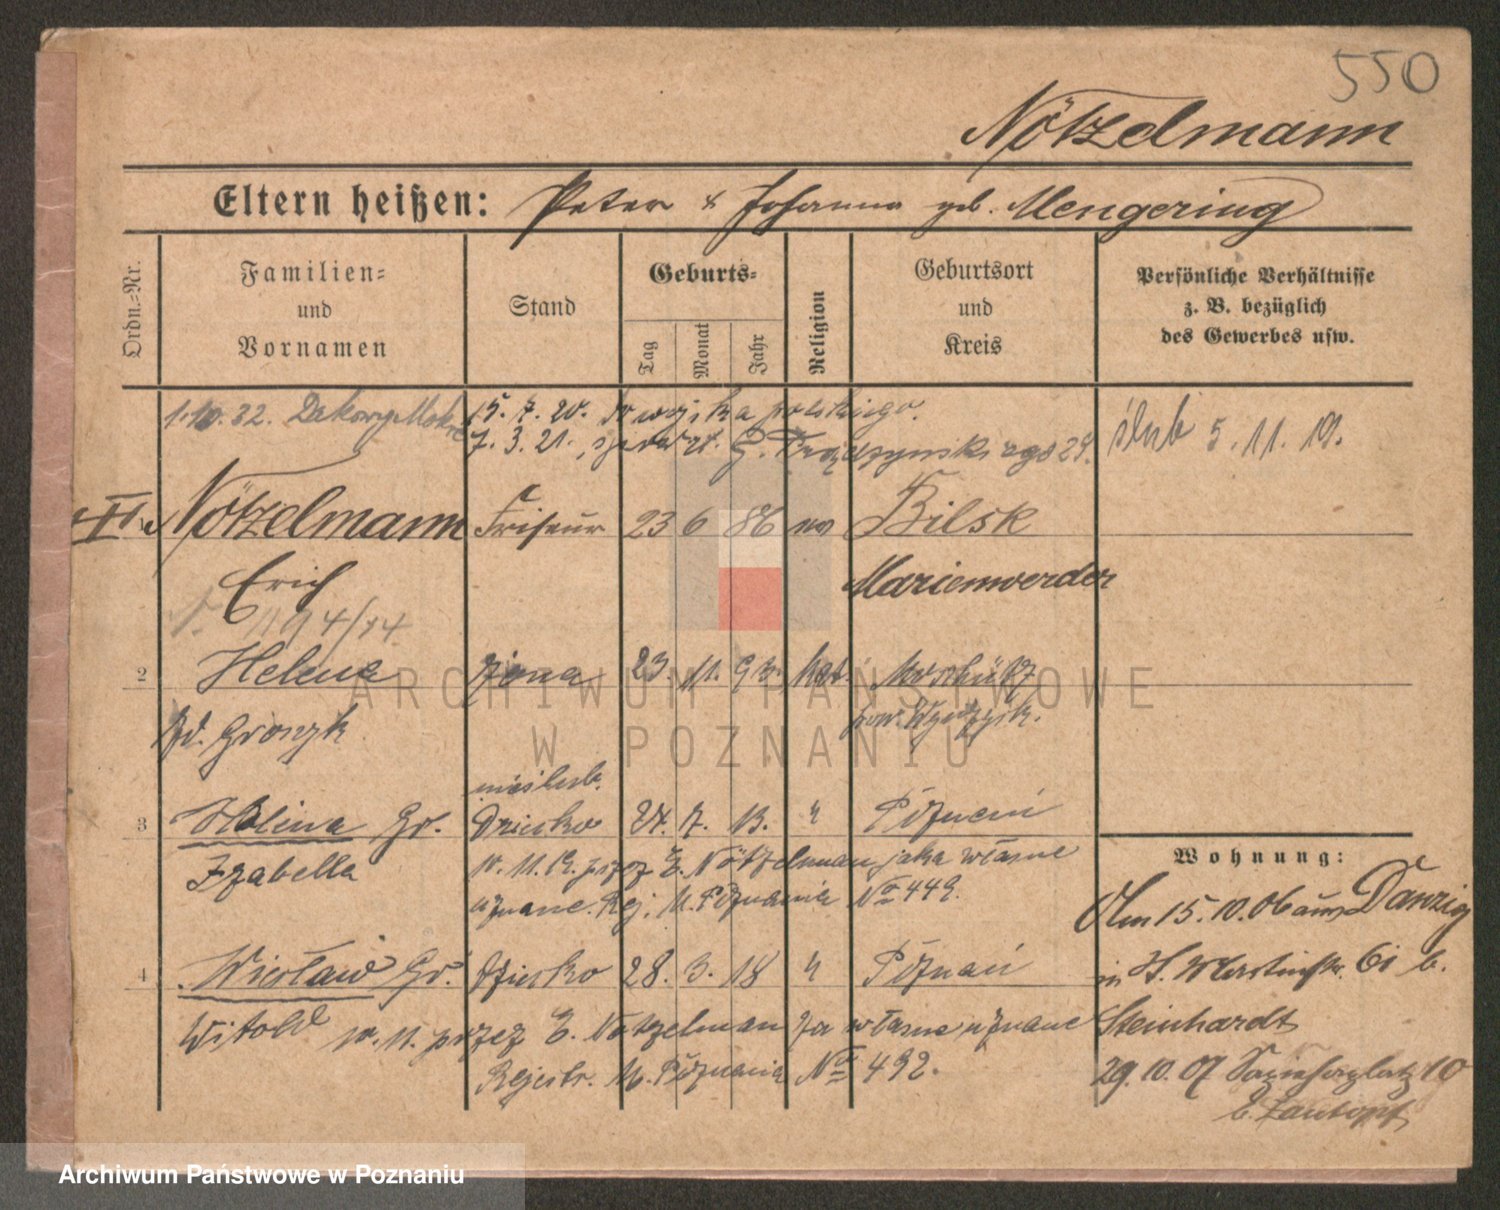 550
Nötzelmann
Eltern heißen: Peter & Johanna geb. Mengering
Ordn.-Nr.
Familien-
und
Vornamen
Stand
Geburts-
Tag
Monat
Jahr
Religion
Geburtsort
und
Kreis
Persönliche Verhältnisse
z. B. bezüglich
des Gewerbes usw.
1.10.32. Dakowy Mokre
15. 7. 20. do wojska polskiego.
7. 3. 21. G. Prądzyńskiego 29.
ślub 5. 11. 19.
Nötzelmann Friseur 23 6 86 ev Bilsk
Erich Marienwerder
2 Helena żona 23. 11. kat.
zd. Gronzk pow. Wyrzysk.
nieślub.
3 Halina Gr. Dziecko 24. 7. 13. " Poznań
Izabella
10. 11. 19. przez E. Nötzelmann jako własne
uznane. Rej. U. Poznania No 449.
4 Wiesław Gr. Dziecko 28. 3. 18 " Poznań
Witold 10. 11. przez E. Notzelman za własne uznane
Rejestr. U. Poznania No 492.
Wohnung:
Am 15. 10. 06 aus Danzig
in St. Martinstr. 61 b.
Steinhardt
29. 10. 07 Sapiehaplatz 10
b. Lautopf
ARCHIWUM PAŃSTWOWE
W POZNANIU
Archiwum Państwowe w Poznaniu